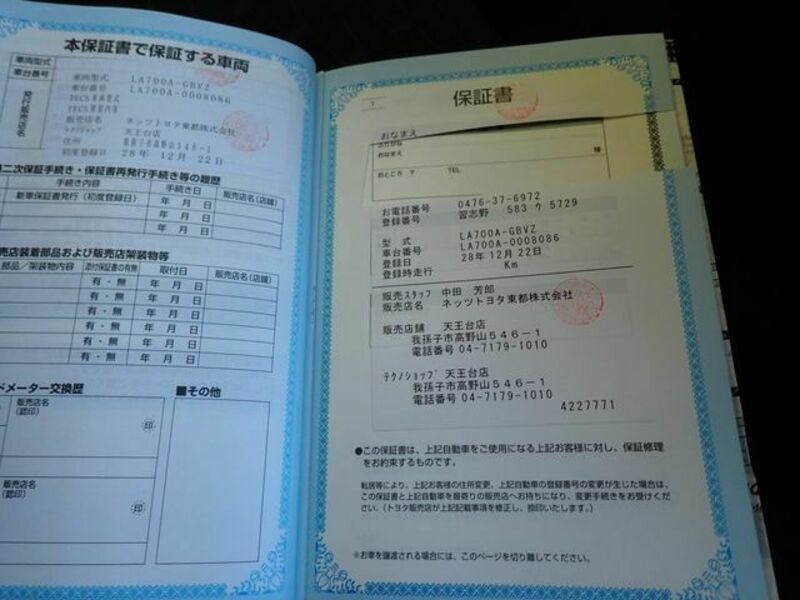 本保証書で保証する車両
車両型式
車台番号
発行販売店名
車両型式 LA700A-GBVZ
車台番号 LA700A-0008086
TECS車両型式
TECS架装内容
販売店名 ネッツトヨタ東都株式会社
テクノショップ 天王台店
住所 我孫子市高野山546-1
初度登録日 28年 12月 22日
二次保証手続き・保証書再発行手続き等の履歴
手続き内容 手続き日 販売店名(店舗)
新車保証書発行(初度登録日) 年 月 日
年 月 日
年 月 日
売店装着部品および販売店架装物等
部品/架装物内容 添付保証書の有無 取付日 販売店名(店舗)
有・無 年 月 日
有・無 年 月 日
有・無 年 月 日
有・無 年 月 日
有・無 年 月 日
有・無 年 月 日
ドメーター交換歴
販売店名
(認印)
印
販売店名
(認印)
印
■その他
1
保証書
おなまえ
ふりがな
おなまえ 様
おところ 〒 TEL
お電話番号 0476-37-6972
登録番号 習志野 583 ウ 5729
型 式 LA700A-GBVZ
車台番号 LA700A-0008086
登録日 28年 12月 22日
登録時走行 Km
販売スタッフ 中田 芳郎
販売店名 ネッツトヨタ東都株式会社
販売店舗 天王台店
我孫子市高野山546-1
電話番号 04-7179-1010
テクノショップ 天王台店
我孫子市高野山546-1
電話番号 04-7179-1010
4227771
●この保証書は、上記自動車をご使用になる上記お客様に対し、保証修理
をお約束するものです。
転居等により、上記お客様の住所変更、上記自動車の登録番号の変更が生じた場合は、
この保証書と上記自動車を最寄りの販売店へお持ちになり、変更手続きをお受けくだ
さい。(トヨタ販売店が上記記載事項を修正し、捺印いたします。)
※お車を譲渡される場合には、このページを切り離してください。